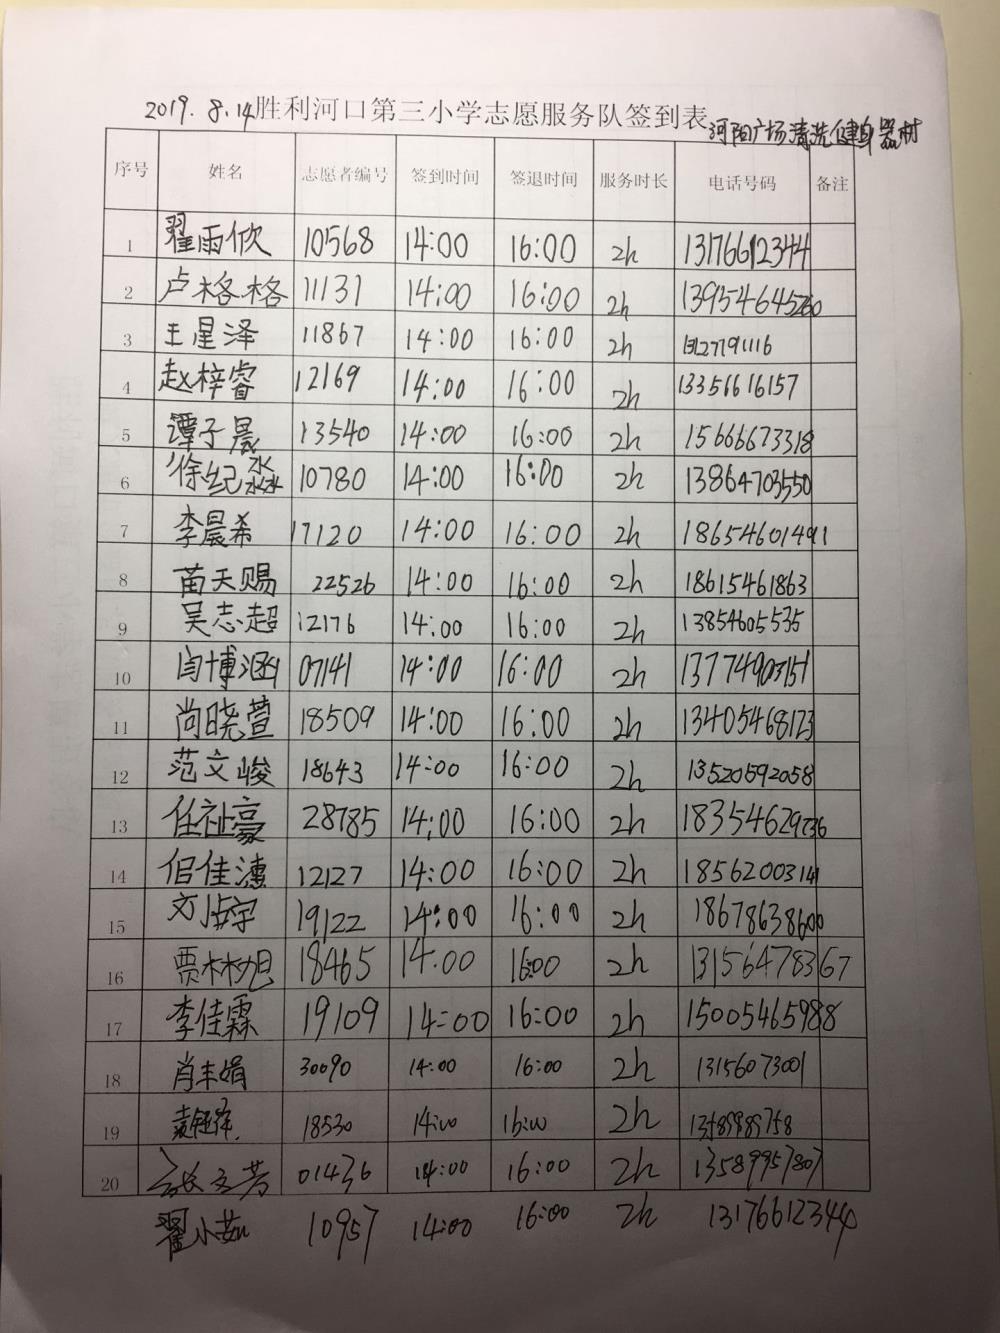 2019.8.14胜利河口第三小学志愿服务队签到表
河阳广场清洗健身器材
序号 姓名 志愿者编号 签到时间 签退时间 服务时长 电话号码 备注
1 翟雨欣 10568 14:00 16:00 2h 13176612344
2 卢格格 11131 14:00 16:00 2h
3 王星泽 11867 14:00 16:00 2h
4 赵梓睿 12169 14:00 16:00 2h 13356616157
5 谭子晨 13540 14:00 16:00 2h 15666673318
6 徐纪淼 10780 14:00 16:00 2h 13864703550
7 李晨希 17120 14:00 16:00 2h 18654601491
8 苗天赐 22526 14:00 16:00 2h 18615461863
9 吴志超 12176 14:00 16:00 2h 13854605535
10 闫博涵 07141 14:00 16:00 2h 13774903151
11 尚晓萱 18509 14:00 16:00 2h 13405468123
12 范文峻 18643 14:00 16:00 2h 13520592058
13 任祉豪 28785 14:00 16:00 2h
14 佀佳潓 12127 14:00 16:00 2h 18562003141
15 19122 14:00 16:00 2h 18678638600
16 贾林旭 18465 14:00 16:00 2h 13156478367
17 李佳霖 19109 14:00 16:00 2h 15005465988
18 肖丰娟 30090 14:00 16:00 2h 13156073001
19 18530 14:00 16:00 2h
20 张立芳 01436 14:00 16:00 2h 13589957807
翟小茹 10957 14:00 16:00 2h 13176612344